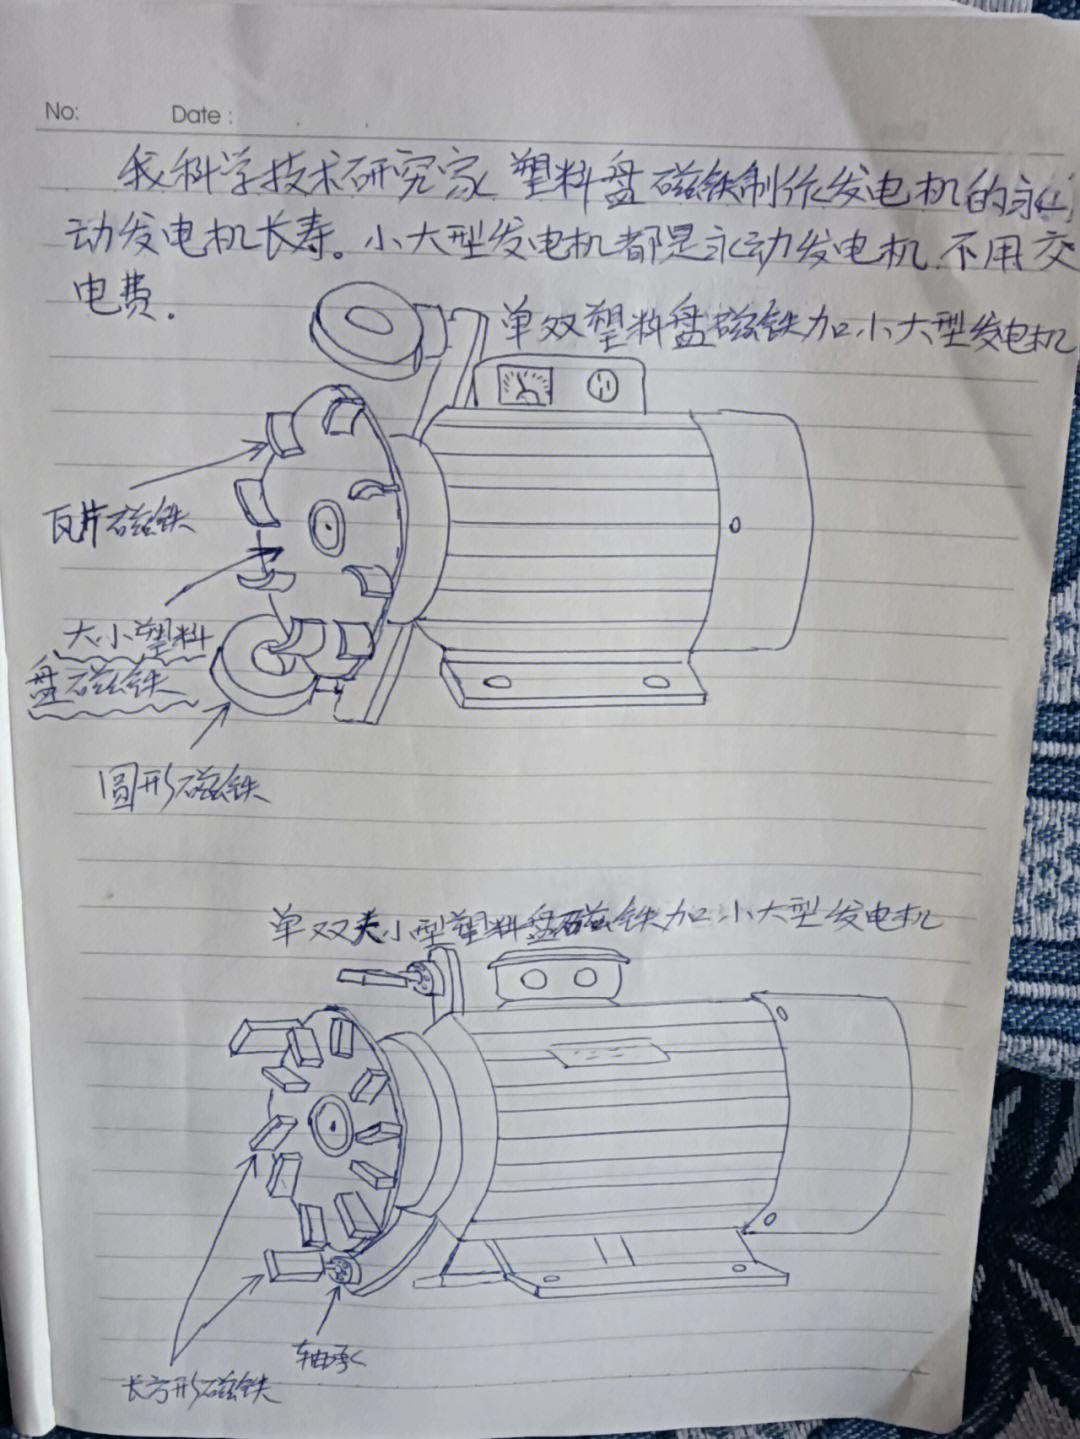 No:
Date :
我科学技术研究家 塑料盘磁铁制作发电机的永
动发电机长寿。小大型发电机都是永动发电机 不用交
电费.
单双塑料盘磁铁加小大型发电机
瓦片磁铁
大小塑料
盘磁铁
圆形磁铁
单双大小型塑料盘磁铁加小大型发电机
轴承
长方形磁铁